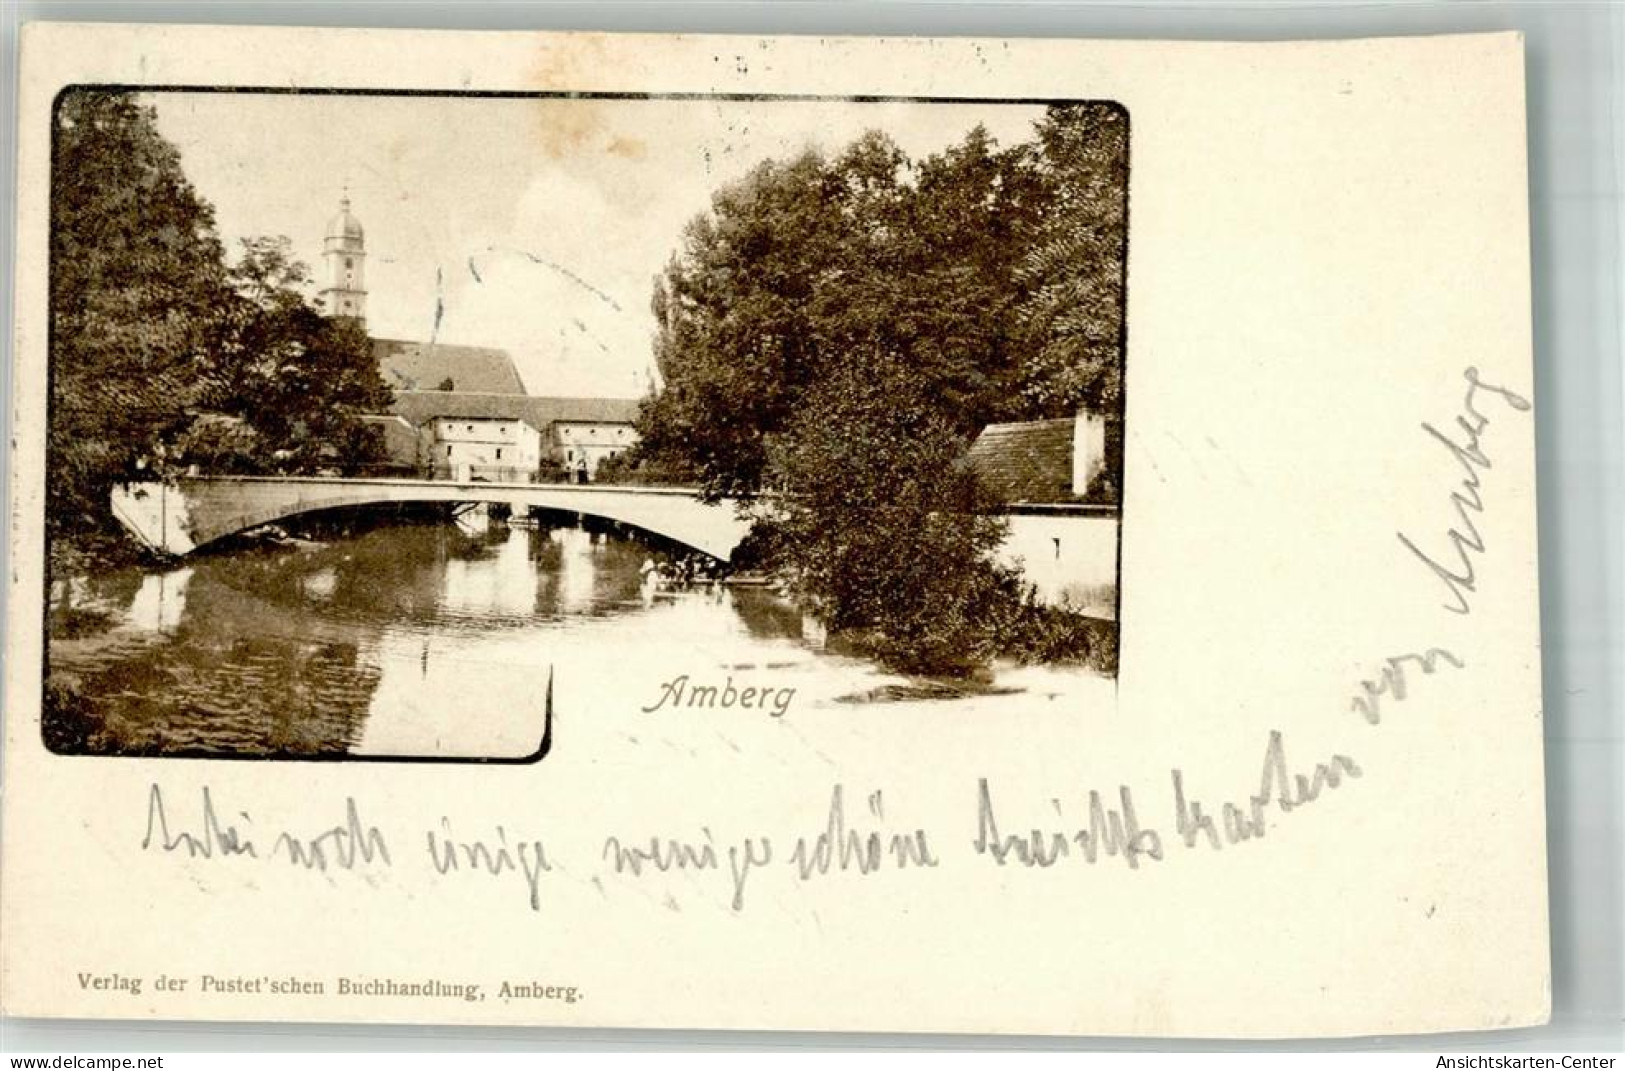 Amberg
Anbei noch einige, wenige schöne Ansichtskarten von Amberg
Verlag der Pustet'schen Buchhandlung, Amberg.
www.delcampe.net
Ansichtskarten-Center